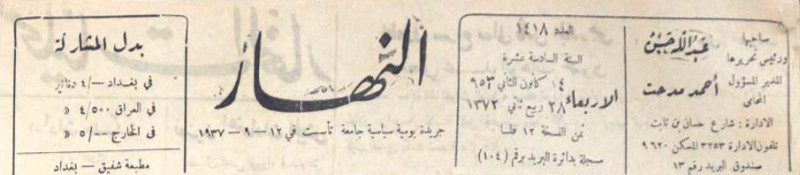 صاحبها
ورئيس تحريرها
عبدالله حسن
المدير المسؤول
المحامي
أحمد مدحت
الادارة : شارع حسان بن ثابت
تلفون الادارة ٣٢٥٣ المسكن ٩٦٢٠
صندوق البريد رقم ١٣
العدد ١٤١٨
السنة السادسة عشرة
الاربعاء
١٤ كانون الثاني ٩٥٣
٢٨ ربيع ثاني ١٣٧٢
ثمن النسخة ١٢ فلسا
مسجلة بدائرة البريد برقم (١٠٤)
النهار
جريدة يومية سياسية جامعة تأسست في ١٢ – ٩ – ١٩٣٧
بدل المشاركة
في بغداد –/٤ دنانير
في العراق ٤/٥٠٠ »
في الخارج ٥/٠٠ »
مطبعة شفيق – بغداد